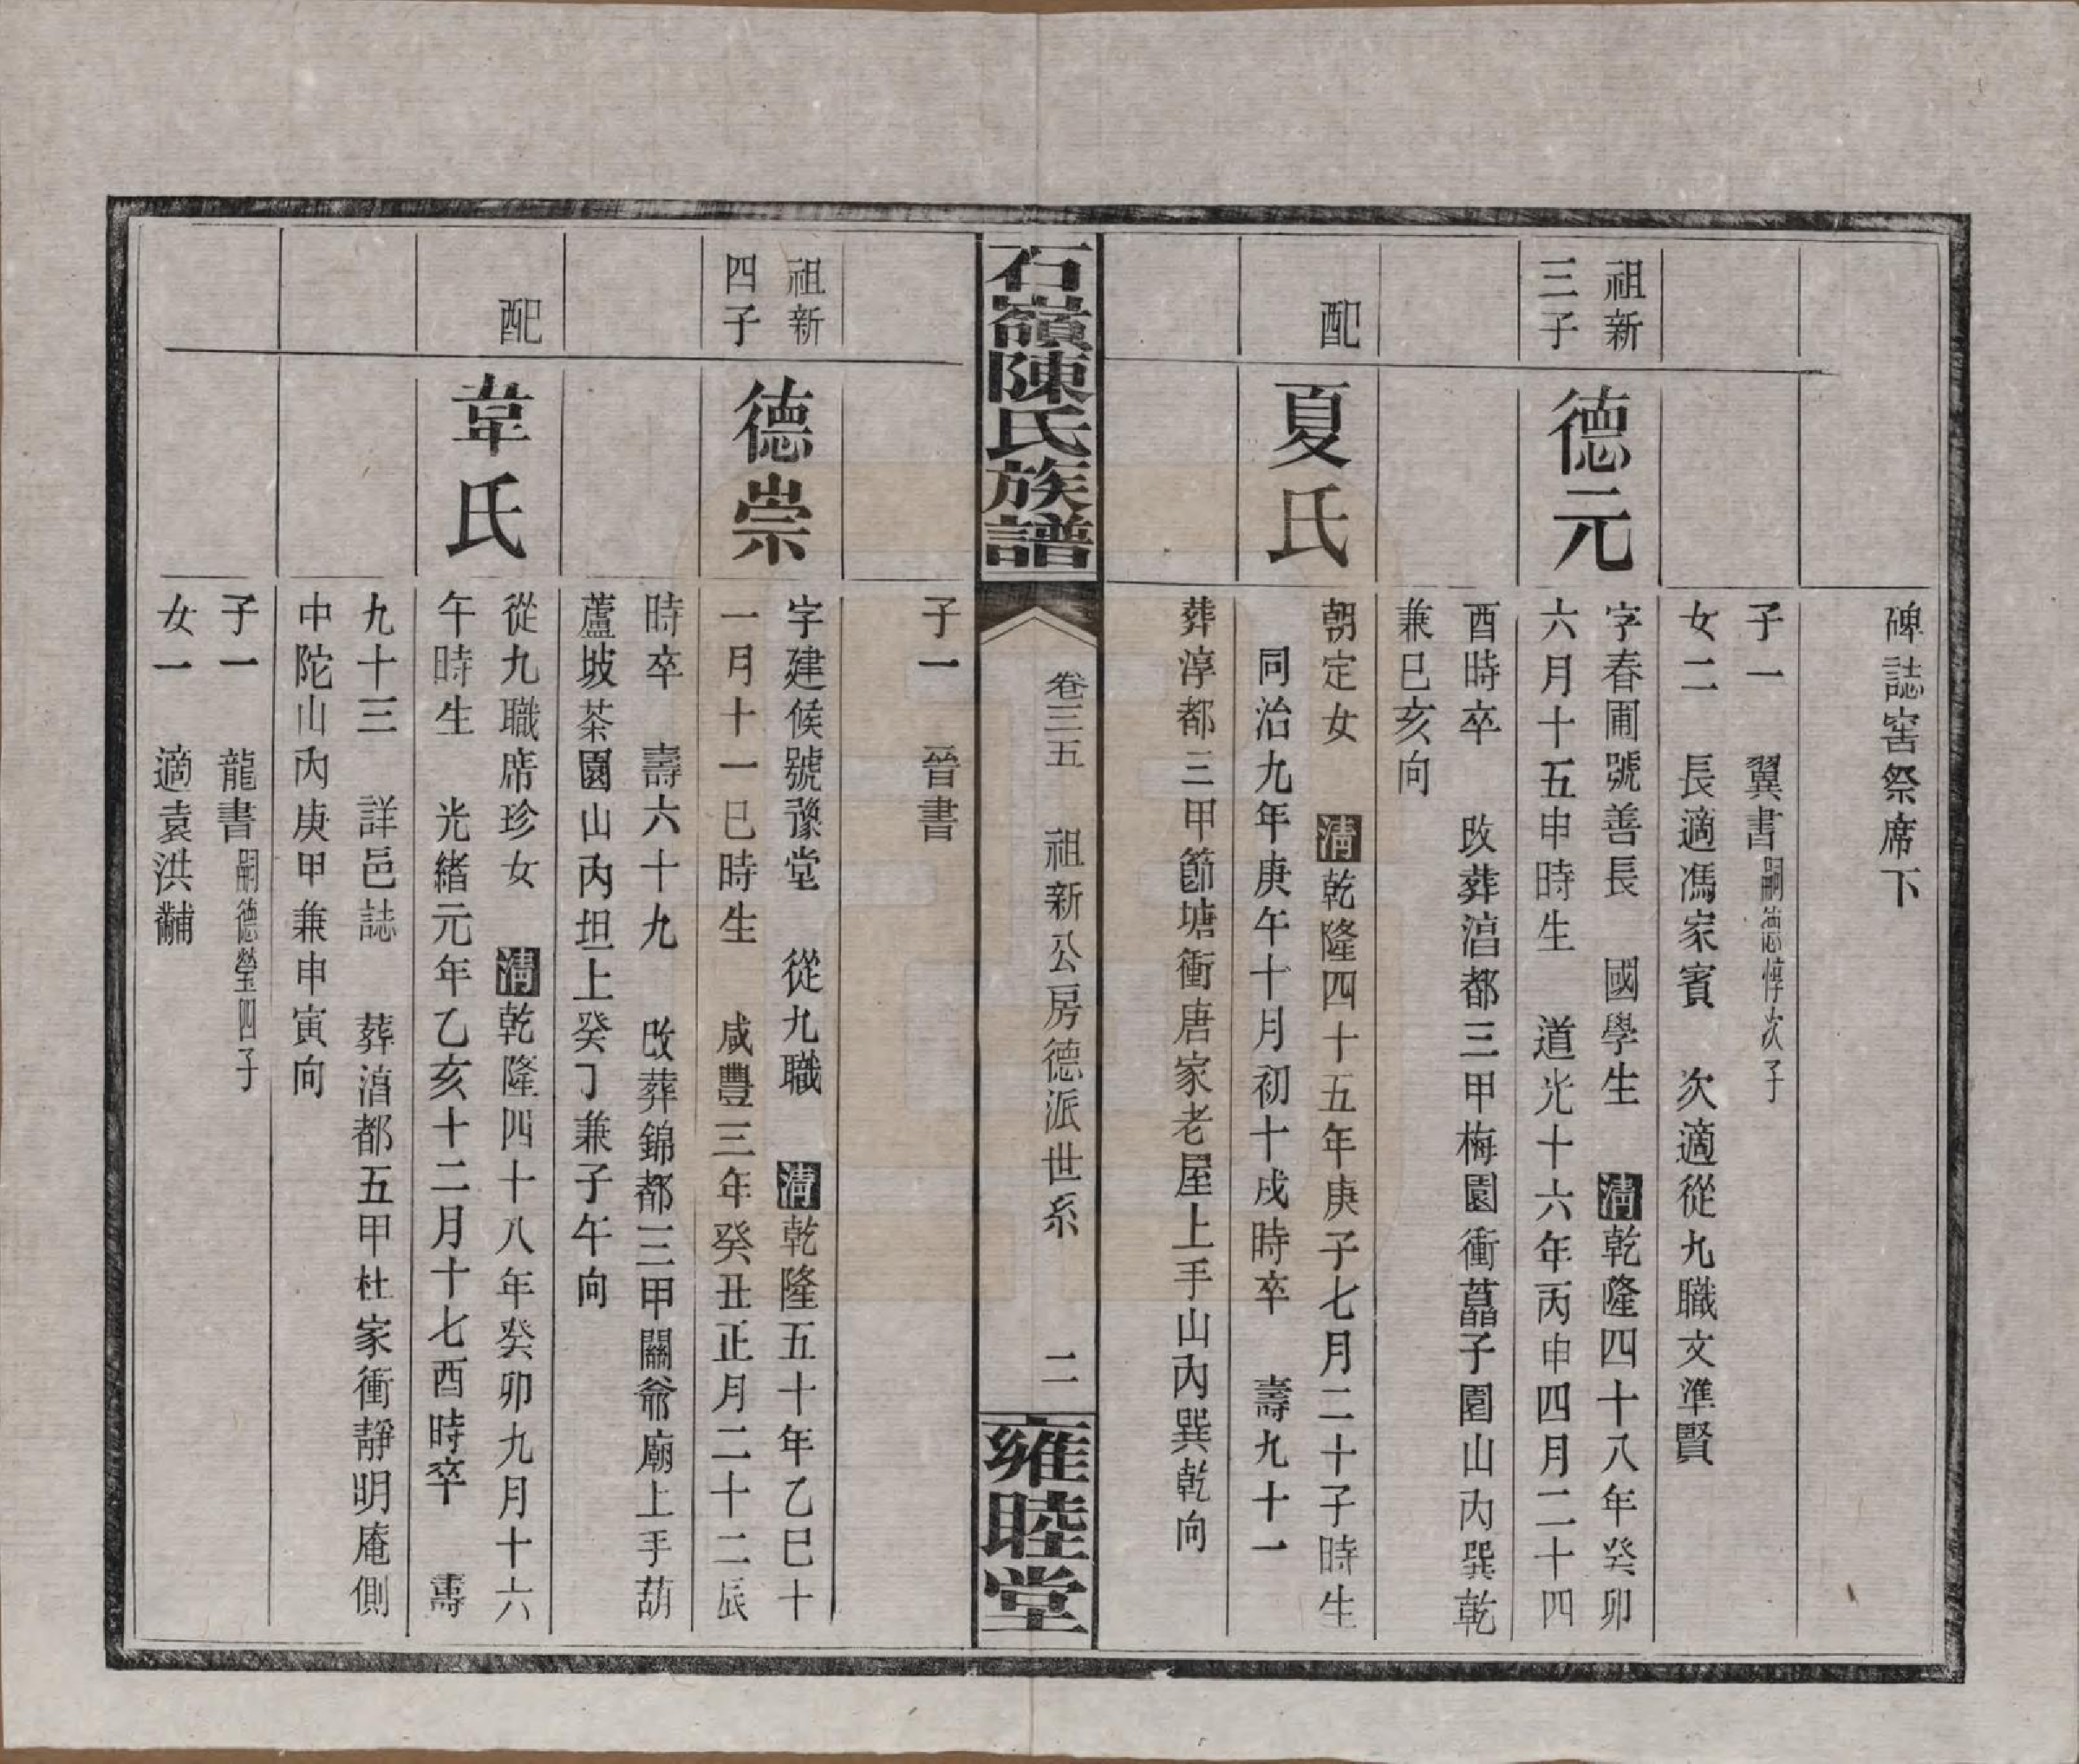 碑誌窖祭席下
子一　翼書嗣德惇次子
女二　長適馮家賓　次適從九職文準賢
祖新
三子
德元
字春圃號善長　國學生　清乾隆四十八年癸卯
六月十五申時生　道光十六年丙申四月二十四
酉時卒　改葬湻都三甲梅園衝藠子園山內巽乾
兼巳亥向
配
夏氏
朝定女　清乾隆四十五年庚子七月二十子時生
同治九年庚午十月初十戌時卒　壽九十一
葬淳都三甲節塘衝唐家老屋上手山內巽乾向
石嶺陳氏族譜
卷三五　祖新公房德派世系　二
雍睦堂
子一　晉書
祖新
四子
德崇
字建候號豫堂　從九職　清乾隆五十年乙巳十
一月十一巳時生　咸豐三年癸丑正月二十二辰
時卒　壽六十九　改葬錦都三甲關爺廟上手葫
蘆坡茶園山內坦上癸丁兼子午向
配
韋氏
從九職席珍女　清乾隆四十八年癸卯九月十六
午時生　光緒元年乙亥十二月十七酉時卒　壽
九十三　詳邑誌　葬湻都五甲杜家衝靜明庵側
中陀山內庚甲兼申寅向
子一　龍書嗣德瑩四子
女一　適袁洪黼